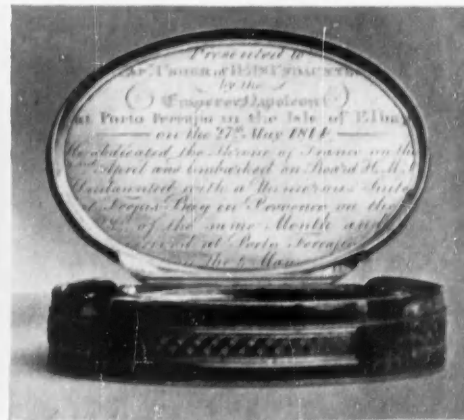 Presented to
by the
Emperor Napoleon
at Porto Ferrajo in the Isle of Elba
on the 27th May 1814
He abdicated the Throne of France on the
April and embarked on Board H.M.
Undaunted with a Numerous Suite
at Frejus Bay in Provence on the
of the same Month and
arrived at Porto Ferrajo
on the May